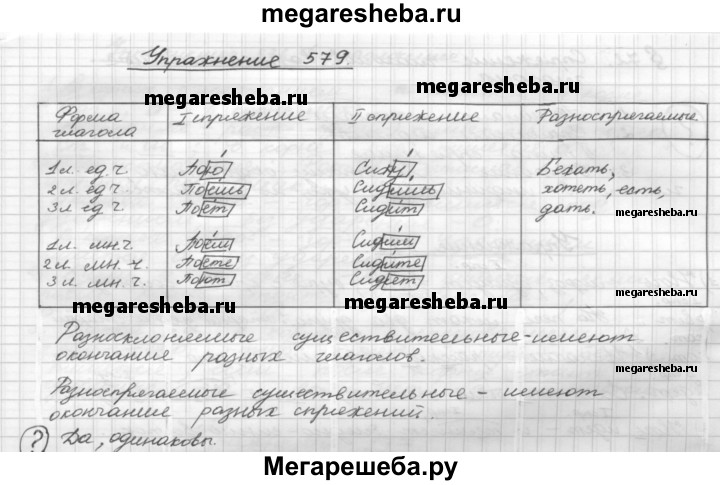 megaresheba.ru
Упражнение 579
megaresheba.ru megaresheba.ru
Форма глагола I спряжение II спряжение Разноспрягаемые
1 л. ед. ч. Пою Сижу Бежать,
2 л. ед. ч. Поёшь Сидишь хотеть, есть,
3 л. ед. ч. Поёт Сидит дать. megaresheba.ru
1 л. мн. ч. Поём Сидим
2 л. мн. ч. Поёте Сидите
3 л. мн. ч. Поют
megaresheba.ru megaresheba.ru
Разносклоняемые существительные - имеют
окончание разных глаголов.
megaresheba.ru
Разноспрягаемые существительные - имеют
окончание разных спряжений.
? Да, одинаковы.
Мегарешеба.ру